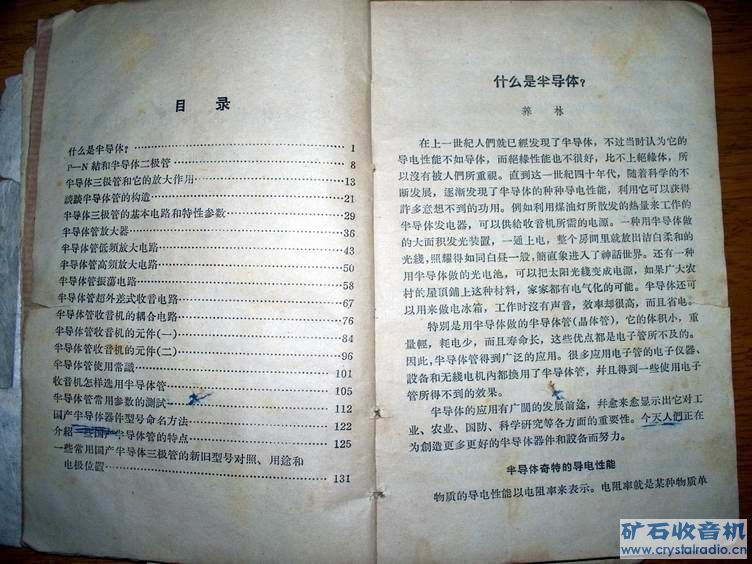 目录
什么是半导体?……1
P—N 結和半导体二极管……8
半导体三极管和它的放大作用……13
談談半导体管的构造……21
半导体三极管的基本电路和特性参数……29
半导体管放大器……36
半导体管低頻放大电路……43
半导体管高頻放大电路……50
半导体管振蕩电路……58
半导体管超外差式收音电路……67
半导体管收音机的耦合电路……76
半导体管收音机的元件(一)……84
半导体管收音机的元件(二)……96
半导体管使用常識……101
收音机怎样选用半导体管……105
半导体管常用参数的测試……112
国产半导体器件型号命名方法……122
介紹一些国产半导体管的特点……125
一些常用国产半导体三极管的新旧型号对照、用途和
电极位置……131
什么是半导体?
在上一世紀人們就已經发現了半导体,不过当时认为它的
导电性能不如导体,而絕緣性能也不很好,比不上絕緣体,所
以沒有被人們所重視。直到这一世紀四十年代,随着科学的不
断发展,逐漸发現了半导体的种种导电性能,利用它可以获得
許多意想不到的功用。例如利用煤油灯所散发的热量来工作的
半导体发电器,可以供給收音机所需的电源。一种用半导体做
的大面积发光装置,一通上电,整个房間里就放出洁白柔和的
光綫,照耀得如同白昼一般,簡直象进入了神話世界。还有一种
用半导体做的光电池,可以把太阳光綫变成电源,如果广大农
村的屋頂鋪上这种材料,家家都有电气化的可能。半导体还可
以用来做电冰箱,工作时沒有声音,效率却很高,而且省电。
特别是用半导体做的半导体管(晶体管),它的体积小,重
量輕,耗电少,而且寿命长,这些优点都是电子管所不及的。
因此,半导体管得到广泛的应用。很多应用电子管的电子仪器、
設备和无綫电机內都換用了半导体管,幷且得到一些使用电子
管所得不到的效果。
半导体的应用有广闊的发展前途,幷愈来愈显示出它对工
业、农业、国防、科学研究等各方面的重要性。今天人們正在
为創造更多更好的半导体器件和設备而努力。
半导体奇特的导电性能
物质的导电性能以电阻率来表示。电阻率就是某种物质单
矿石收音机
www.crystalradio.cn